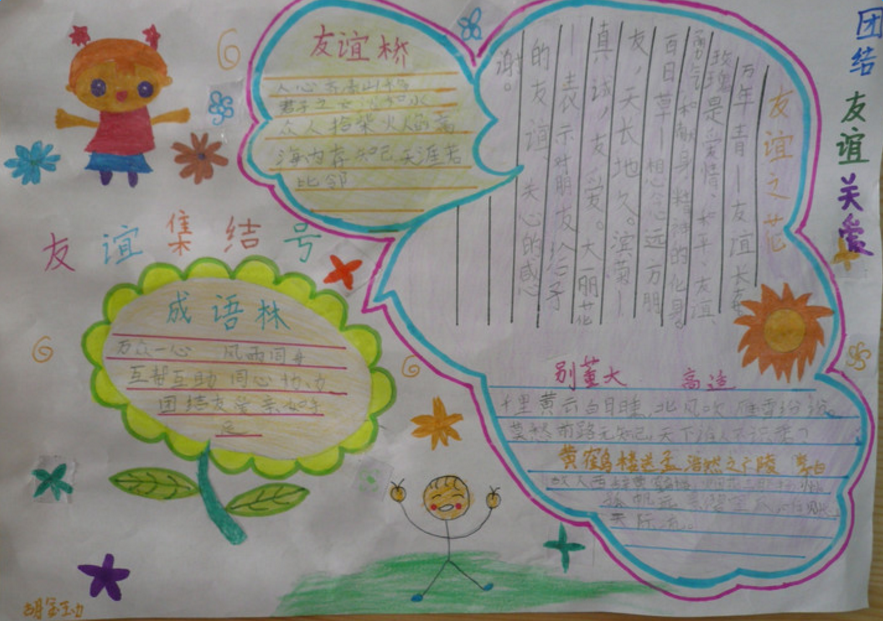 团结友谊关爱
友谊桥
人心齐泰山移
君子之交淡如水
众人拾柴火焰高
海内存知己天涯若
比邻
友谊之花
万年青—友谊长存
玫瑰是爱情、和平、友谊、
勇气和献身精神的化身。
百日草—想念远方朋
友,天长地久。滨菊—
真诚,友爱。大丽花
—表示对朋友给予
的友谊、关心的感
谢。
友谊集结号
成语林
万众一心 风雨同舟
互帮互助 同心协力
团结友爱 亲如手
足
别董大 高适
千里黄云白日曛,北风吹雁雪纷纷。
莫愁前路无知己,天下谁人不识君?
黄鹤楼送孟浩然之广陵
故人西辞黄鹤楼
天际流。